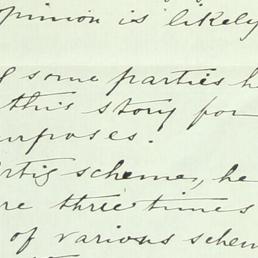 opinion is likely
some parties h
this story for
purposes.
scheme, he
re three times
of various schem